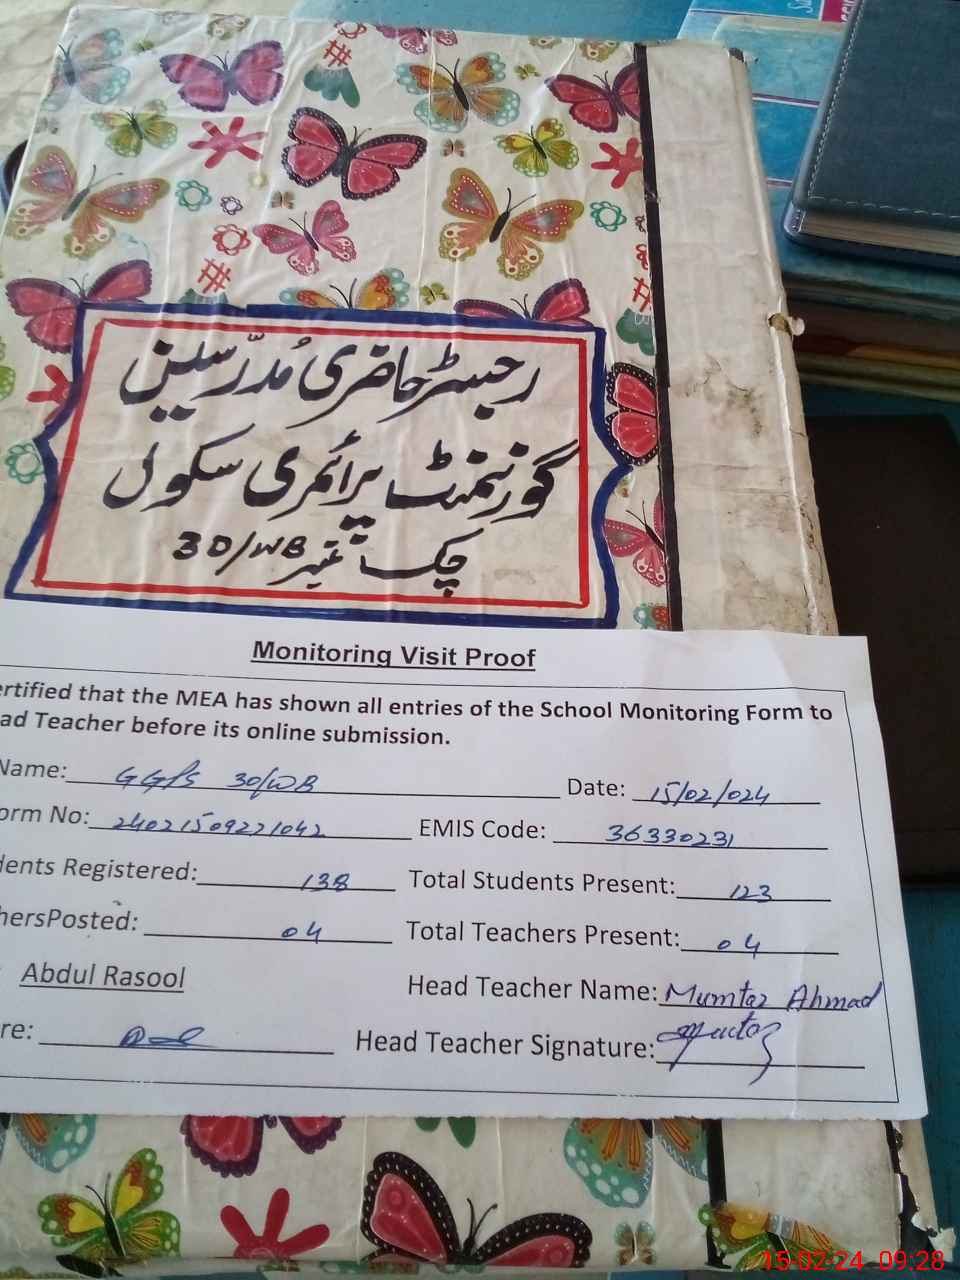 رجسٹر حاضری مُدرّسین
گورنمنٹ پرائمری سکول
چک نمبر 30/WB
Monitoring Visit Proof
ertified that the MEA has shown all entries of the School Monitoring Form to
ad Teacher before its online submission.
Name: GGPS 30/WB Date: 15/02/024
orm No: 24021509221042 EMIS Code: 36330231
dents Registered: 138 Total Students Present: 123
hersPosted: 04 Total Teachers Present: 04
Abdul Rasool Head Teacher Name: Mumtaz Ahmad
re: Head Teacher Signature: Mumtaz
15-02-24 09:28